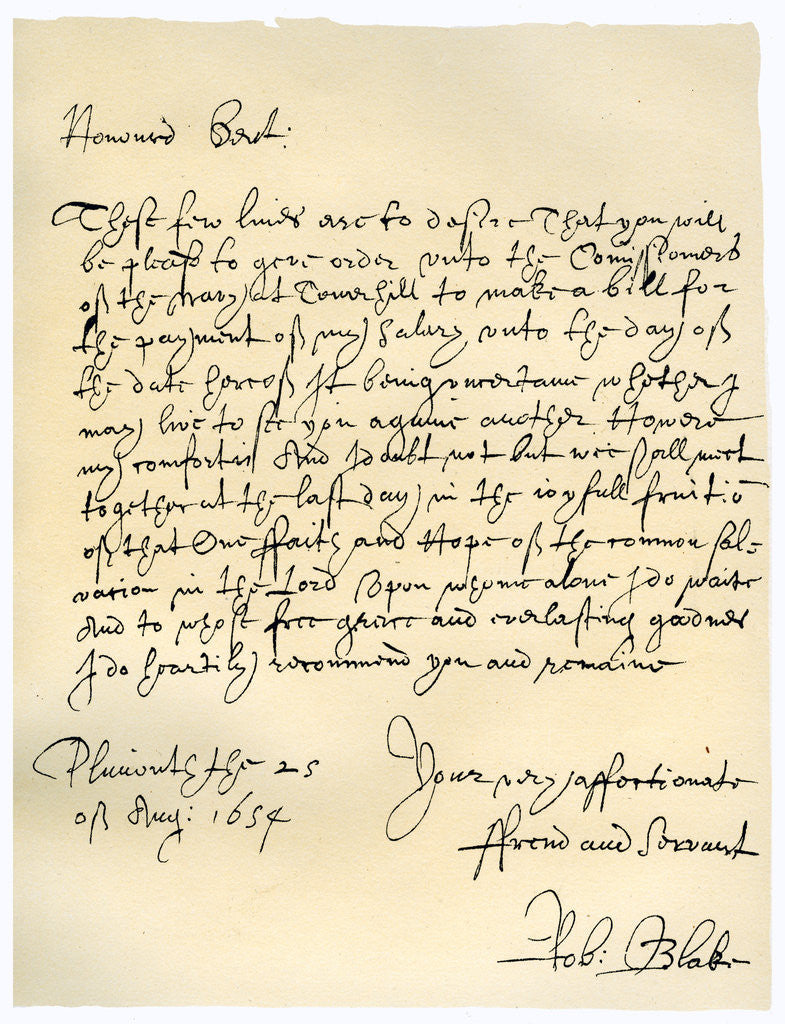 Honoured Gent:
These few lines are to desire That you will
be pleasd to geve order unto the Comissioners
of the Navy at Towerhill to make a bill for
the payment of my salary unto the day of
the date hereof It being uncertaine whether I
may live to see you againe another. Howere
my comfort is And I doubt not but wee shall meet
together at the last day in the ioyfull fruitiō
of that One ffaith and Hope of the common sal=
vation in the Lord Upon whome alone I do waite
And to whose free grace and everlasting goodnes
I do heartily recommend you and remaine
Plimouth the 25
of Aug: 1654
Your very affectionate
ffrend and Servant
Rob: Blake